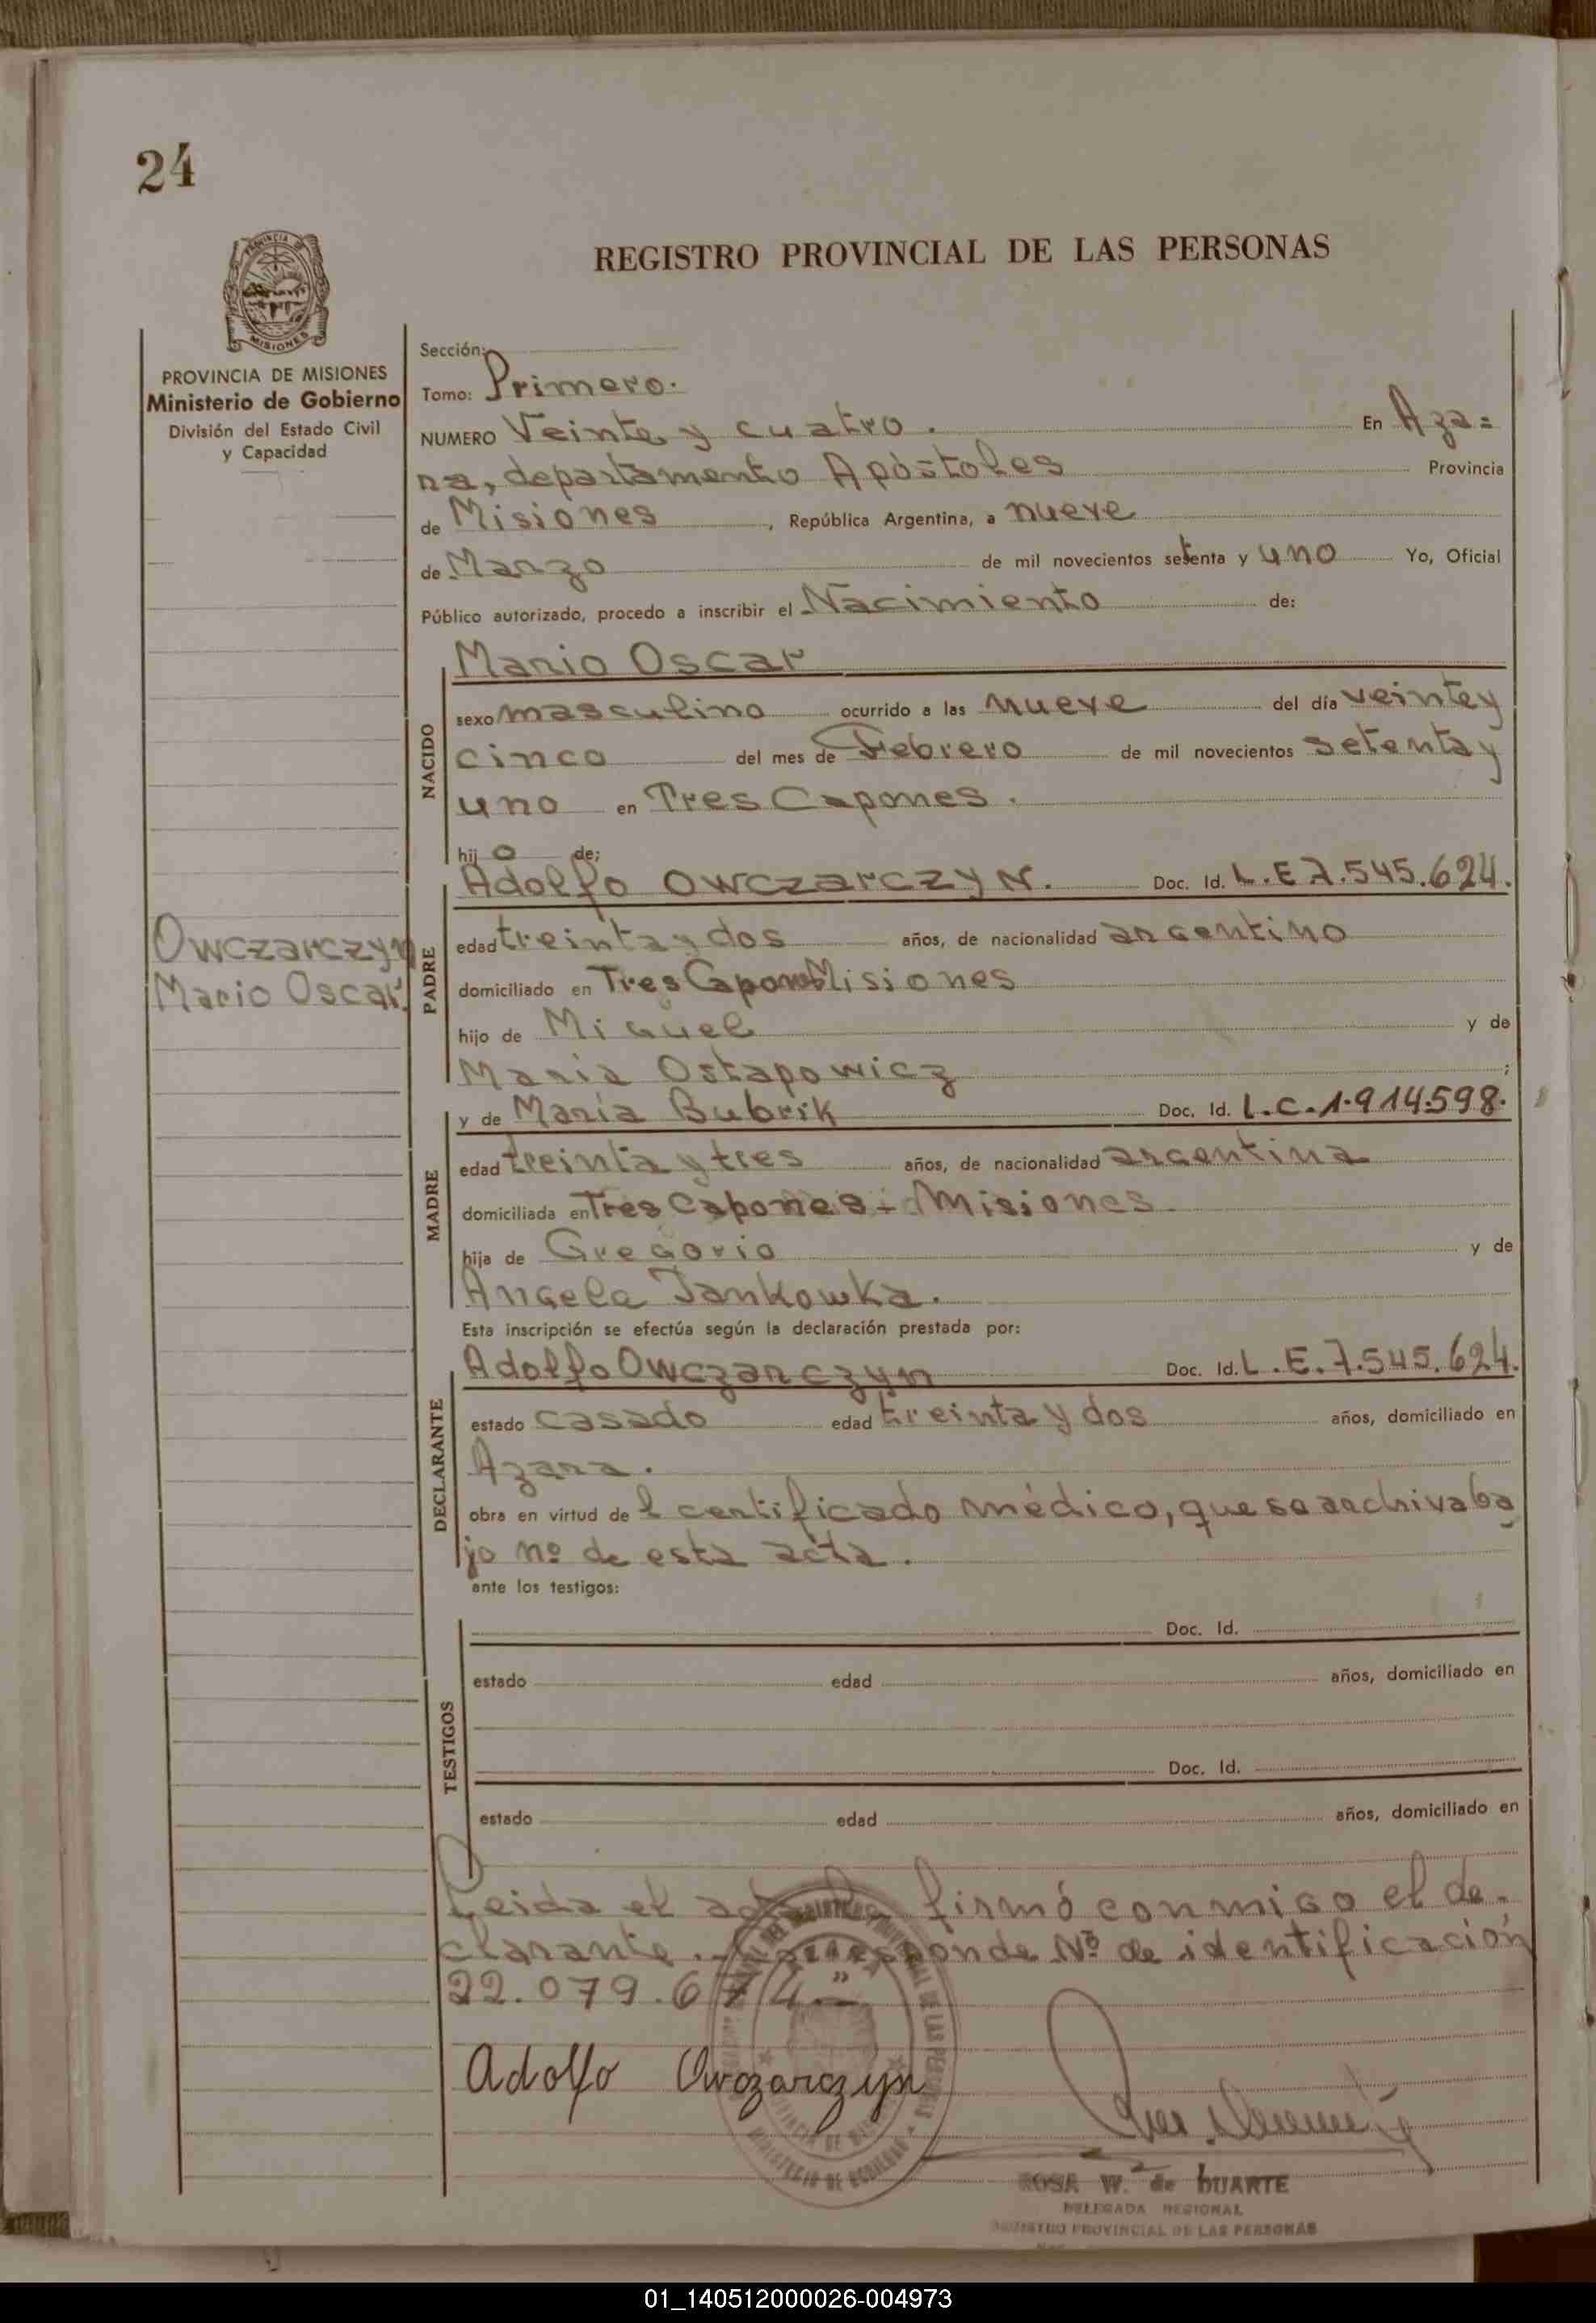 24
PROVINCIA DE
MISIONES
REGISTRO PROVINCIAL DE LAS PERSONAS
PROVINCIA DE MISIONES
Ministerio de Gobierno
División del Estado Civil
y Capacidad
Sección:
Tomo: Primero.
NUMERO Veinte y cuatro. En Aza=
ra, departamento Apóstoles Provincia
de Misiones, República Argentina, a nueve
de Marzo de mil novecientos setenta y uno Yo, Oficial
Público autorizado, procedo a inscribir el Nacimiento de:
Mario Oscar
NACIDO
sexo masculino ocurrido a las nueve del día veinte y
cinco del mes de Febrero de mil novecientos setenta y
uno en Tres Capones.
hij o de:
Adolfo Owczarczyn. Doc. Id. L.E 7.545.624.
Owczarczyn
Mario Oscar.
PADRE
edad treinta y dos años, de nacionalidad argentino
domiciliado en Tres Capones Misiones
hijo de Miguel y de
Maria Ostapowicz ;
y de María Bubrik Doc. Id. L.C.1.914.598.
MADRE
edad treinta y tres años, de nacionalidad argentina
domiciliada en Tres Capones - Misiones.
hija de Gregorio y de
Angela Jankowka.
Esta inscripción se efectúa según la declaración prestada por:
Adolfo Owczarczyn Doc. Id. L.E.7.545.624.
DECLARANTE
estado casado edad treinta y dos años, domiciliado en
Azara.
obra en virtud de l certificado médico, que se archiva ba
jo nº de esta acta.
ante los testigos:
TESTIGOS
Doc. Id.
estado edad años, domiciliado en
Doc. Id.
estado edad años, domiciliado en
Leida el acta, la firmó conmigo el de-
clarante. Corresponde Nº de identificación
22.079.674."
Adolfo Owczarczyn
ROSA W. de DUARTE
DELEGADA REGIONAL
REGISTRO PROVINCIAL DE LAS PERSONAS
01_140512000026-004973